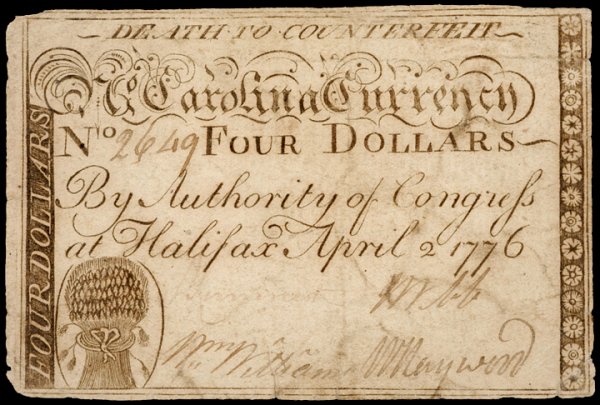 DEATH TO COUNTERFEIT
No Carolina Currency
No 2649 FOUR DOLLARS
By Authority of Congress
at Halifax April 2 1776
FOUR DOLLARS
Webb
Wm Williams W Haywood